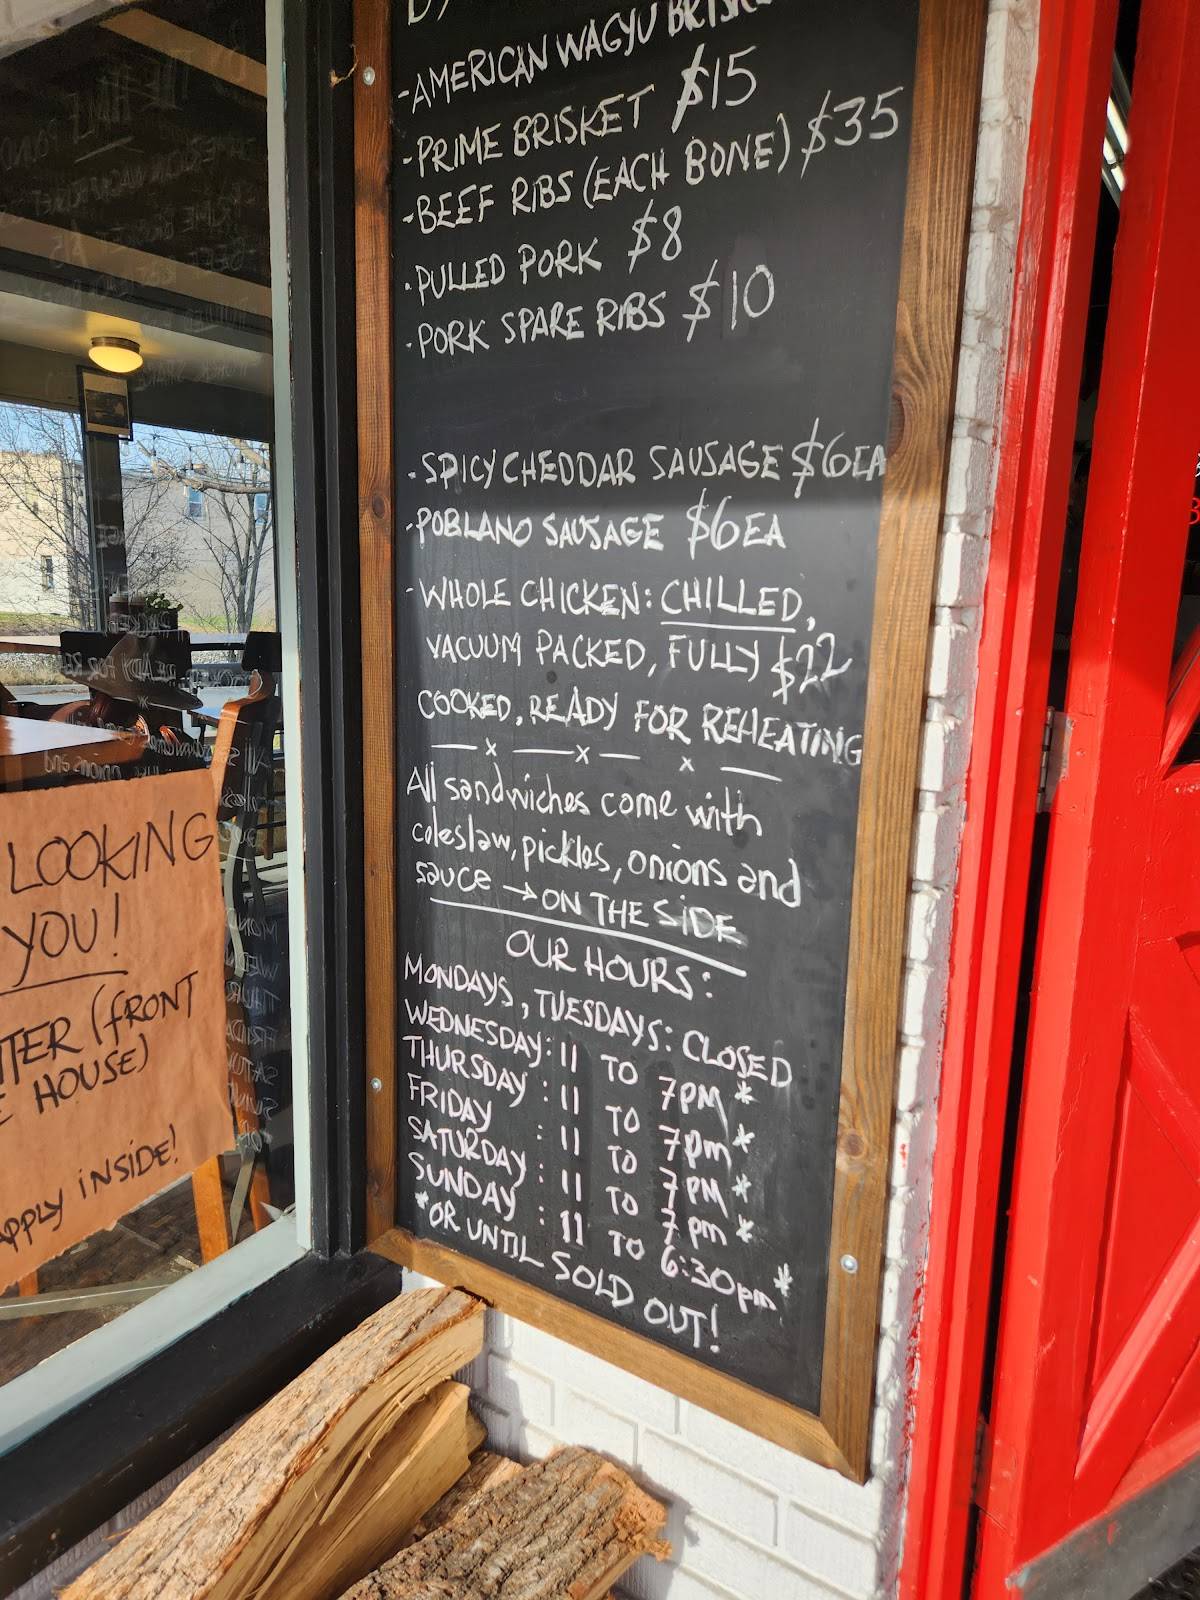 -AMERICAN WAGYU
-PRIME BRISKET $15
-BEEF RIBS (EACH BONE) $35
-PULLED PORK $8
-PORK SPARE RIBS $10
-SPICY CHEDDAR SAUSAGE $6EA
-POBLANO SAUSAGE $6EA
-WHOLE CHICKEN: CHILLED,
VACUUM PACKED, FULLY $22
COOKED, READY FOR REHEATING
All sandwiches come with
coleslaw, pickles, onions and
sauce → ON THE SIDE
OUR HOURS:
MONDAYS, TUESDAYS: CLOSED
WEDNESDAY: 11 TO 7PM *
THURSDAY : 11 TO 7pm *
FRIDAY : 11 TO 7PM *
SATURDAY : 11 TO 7pm *
SUNDAY : 11 TO 6:30pm *
*OR UNTIL SOLD OUT!
LOOKING
YOU!
(FRONT
HOUSE)
APPLY INSIDE!